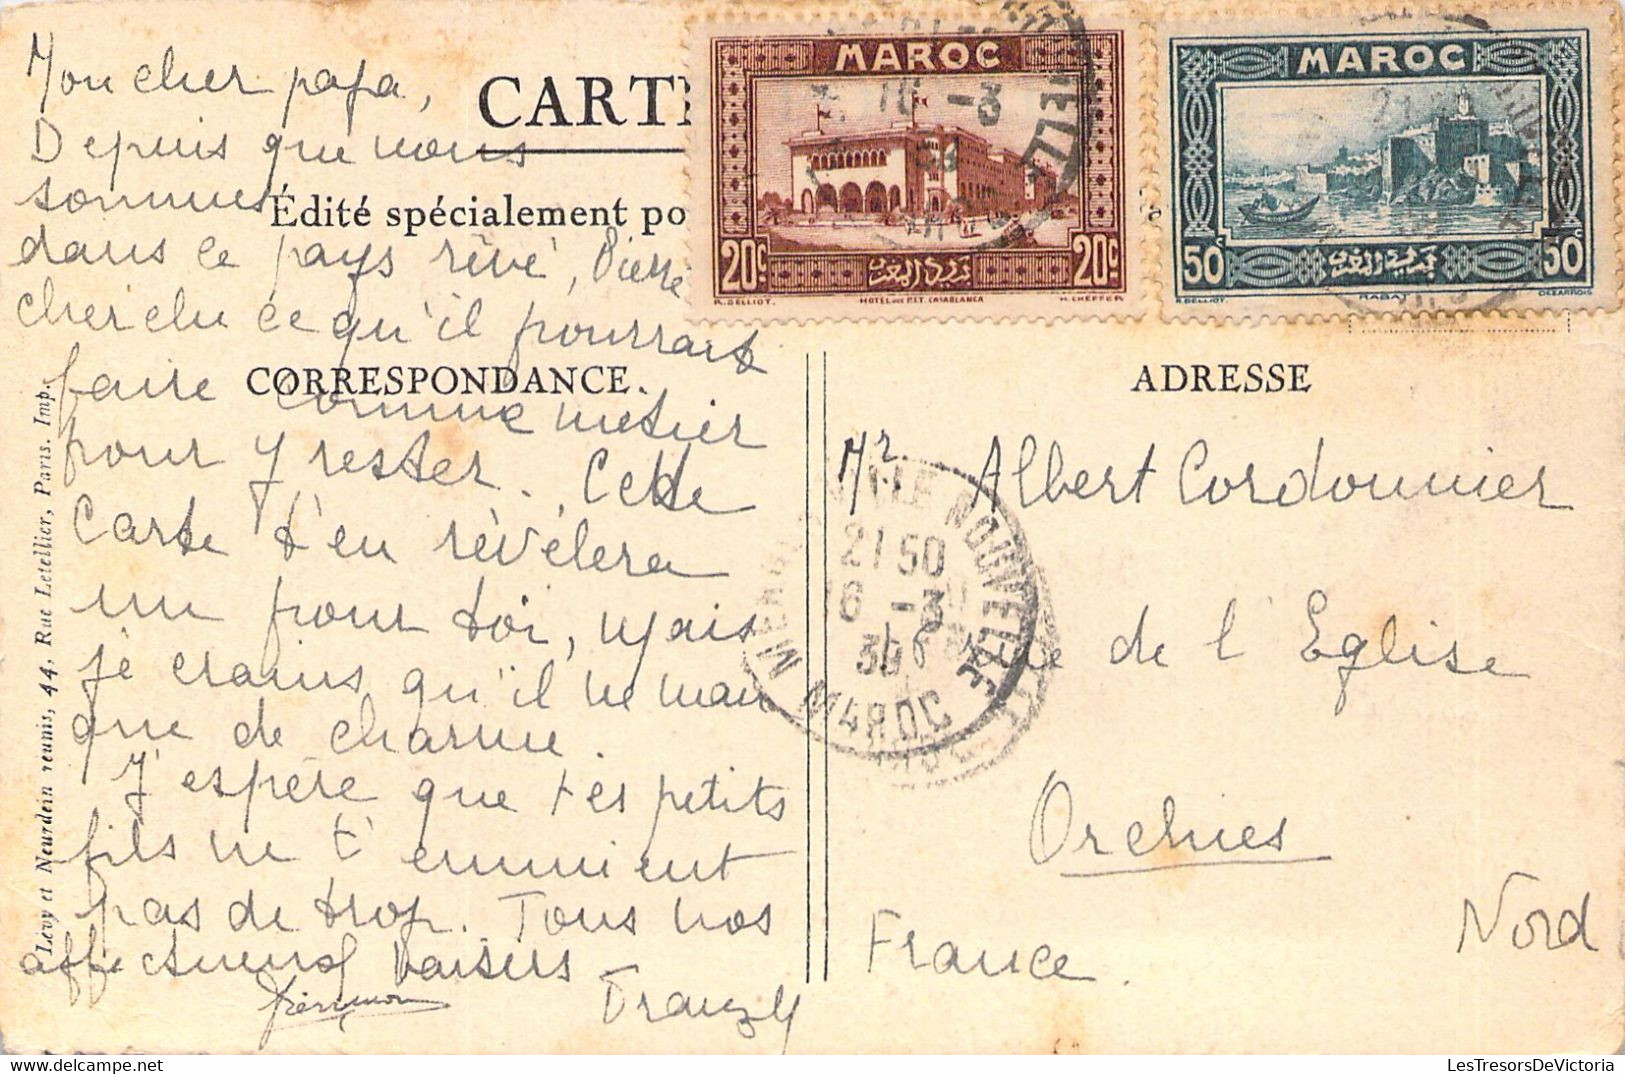 Mon cher papa,
Depuis que nous
sommes
dans ce pays rêvé, Pierre
cherche ce qu'il pourrait
faire comme métier
pour y rester. Cette
Carte t'en révèlera
un pour toi, mais
je crains qu'il ne man
que de charme.
J'espère que tes petits
fils ne t'ennuient
pas de trop. Tous nos
affectueux baisers
CART
Édité spécialement po
CORRESPONDANCE.
Lévy et Neurdein réunis, 44, Rue Letellier, Paris. Imp.
MAROC
20c 20c
HOTEL DES P.T.T. CASABLANCA
H. CHEFFER
MAROC
50c 50c
RABAT
DEZARROIS
16 -3
VILLE NOUVELLE
21 50
16 -3
MAROC
ADRESSE
Mr. Albert Cordonnier
de l'Eglise
Orchies
Nord
France.
LesTresorsDeVictoria